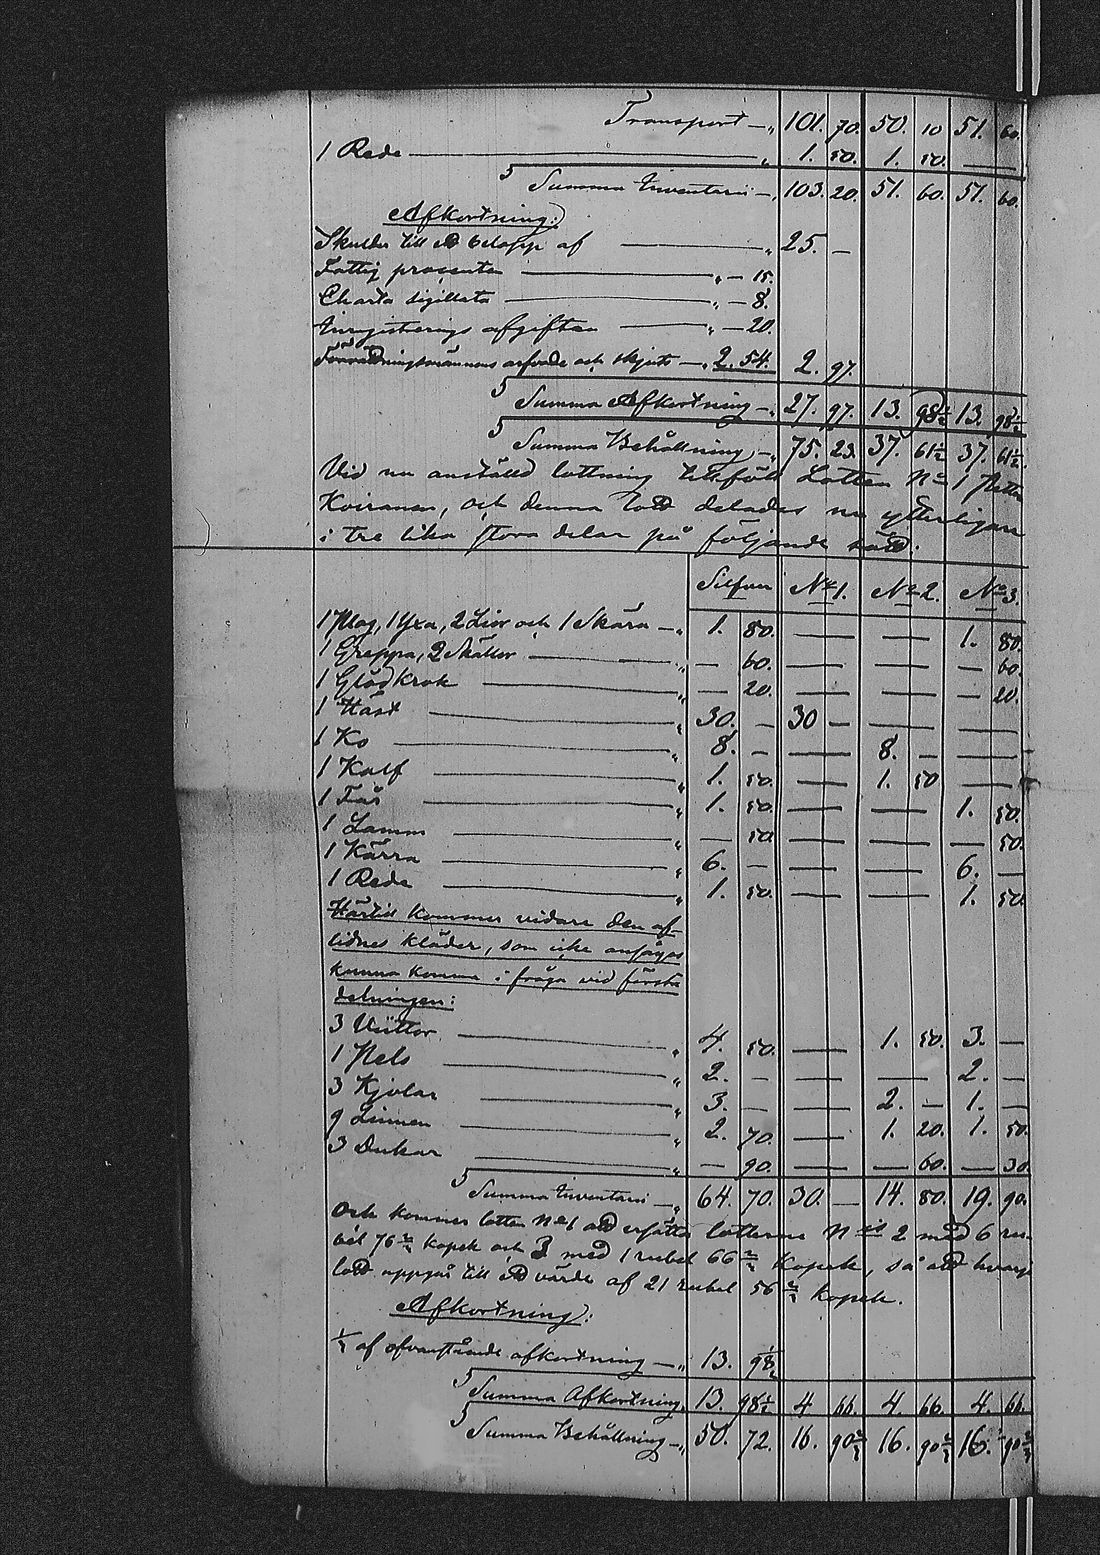 Transport — „ 101. 70. 50. 10 51. 60.
1 Rede — „ 1. 50. 1. 50. —
S Summa Inventarii — „ 103. 20. 51. 60. 51. 60.
Afkortning:
Skulder till ett belopp af — „ 25. —
Fattig procenten — „ — 15.
Charta sigillata — „ — 8.
Inregistrerings afgiften — „ — 20.
Förrättningsmännens arfvode och skjuts — „ 2. 54. 2. 97.
S Summa Afkortning — „ 27. 97. 13. 98½ 13. 98½
S Summa Behållning — „ 75. 23. 37. 61½ 37. 61½.
Vid nu anställd lottning tillföll Lotten No 1 Petter
Koiranen, och denna lott delades nu ytterligare
i tre lika stora delar på följande sätt:
Silfver No 1. No 2. No 3.
1 Plog, 1 Yxa, 2 Liar och 1 Skära — „ 1. 80. — — 1. 80.
1 Greppa, 2 Skållor — „ — 60. — — — 60.
1 Glödkrok — „ — 20. — — — 20.
1 Häst — „ 30. — 30 — — —
1 Ko — „ 8. — — 8. — —
1 Kalf — „ 1. 50. — 1. 50 —
1 Får — „ 1. 50. — — 1. 50.
1 Lamm — „ — 50. — — — 50.
1 Kärra — „ 6. — — — 6. —
1 Rede — „ 1. 50. — — 1. 50.
Härtill kommer vidare den af-
lidnes kläder, som icke ansågos
kunna komma i fråga vid första
delningen:
3 — „ 4. 50. — 1. 50. 3. —
1 Pels — „ 2. — — — 2. —
3 Kjolar — „ 3. — — 2. — 1. —
9 Linnen — „ 2. 70. — 1. 20. 1. 50.
3 Dukar — „ — 90. — — 60. — 30.
S Summa Inventarii — „ 64. 70. 30. — 14. 80. 19. 90.
Och kommer lotten No 1 att ersätta lotterne No 2 med 6 ru-
bel 76⅔ kopek och 3 med 1 rubel 66⅔ kopek, så att hvarje
lott uppgår till ett värde af 21 rubel 56⅔ kopek.
Afkortning:
½ af ofvanstående afkortning — „ 13. 98½
S Summa Afkortning „ 13. 98½ 4 66. 4. 66. 4. 66.
S Summa Behållning — „ 50. 72. 16. 90⅔ 16. 90⅔ 16. 90⅔